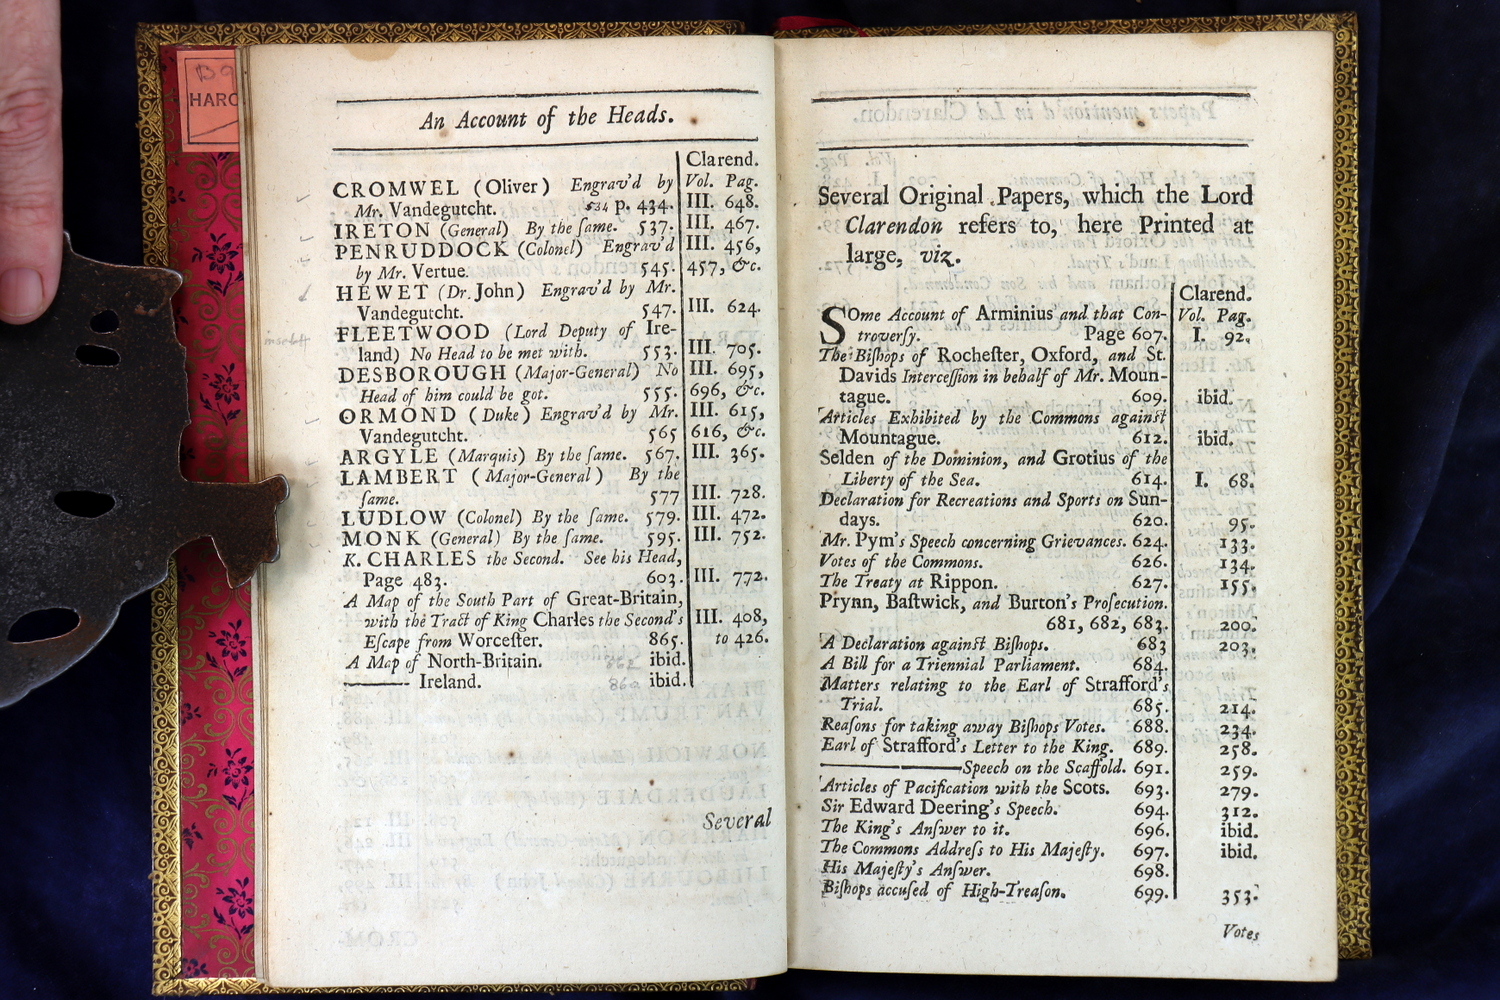 HARC
An Account of the Heads.
Clarend.
CROMWEL (Oliver) Engrav'd by Vol. Pag.
Mr. Vandegutcht. 534 p. 434. III. 648.
IRETON (General) By the ſame. 537. III. 467.
PENRUDDOCK (Colonel) Engrav'd III. 456,
by Mr. Vertue. 545. 457, &c.
HEWET (Dr. John) Engrav'd by Mr.
Vandegutcht. 547. III. 624.
FLEETWOOD (Lord Deputy of Ire-
land) No Head to be met with. 553. III. 705.
DESBOROUGH (Major-General) No III. 695,
Head of him could be got. 555. 696, &c.
ORMOND (Duke) Engrav'd by Mr. III. 615,
Vandegutcht. 565 616, &c.
ARGYLE (Marquis) By the ſame. 567. III. 365.
LAMBERT (Major-General) By the
ſame. 577 III. 728.
LUDLOW (Colonel) By the ſame. 579. III. 472.
MONK (General) By the ſame. 595. III. 752.
K. CHARLES the Second. See his Head,
Page 483. 603. III. 772.
A Map of the South Part of Great-Britain,
with the Tract of King Charles the Second's III. 408,
Eſcape from Worceſter. 865. to 426.
A Map of North-Britain. ibid.
——— Ireland. ibid.
Several
Several Original Papers, which the Lord
Clarendon refers to, here Printed at
large, viz.
Clarend.
SOme Account of Arminius and that Con- Vol. Pag.
troverſy. Page 607. I. 92.
The Biſhops of Rocheſter, Oxford, and St.
Davids Interceſſion in behalf of Mr. Moun-
tague. 609. ibid.
Articles Exhibited by the Commons againſt
Mountague. 612. ibid.
Selden of the Dominion, and Grotius of the
Liberty of the Sea. 614. I. 68.
Declaration for Recreations and Sports on Sun-
days. 620. 95.
Mr. Pym's Speech concerning Grievances. 624. 133.
Votes of the Commons. 626. 134.
The Treaty at Rippon. 627. 155.
Prynn, Baſtwick, and Burton's Proſecution.
681, 682, 683. 200.
A Declaration againſt Biſhops. 683 203.
A Bill for a Triennial Parliament. 684.
Matters relating to the Earl of Strafford's
Trial. 685. 214.
Reaſons for taking away Biſhops Votes. 688. 234.
Earl of Strafford's Letter to the King. 689. 258.
——————Speech on the Scaffold. 691. 259.
Articles of Pacification with the Scots. 693. 279.
Sir Edward Deering's Speech. 694. 312.
The King's Anſwer to it. 696. ibid.
The Commons Addreſs to His Majeſty. 697. ibid.
His Majeſty's Anſwer. 698.
Biſhops accuſed of High-Treaſon. 699. 353.
Votes